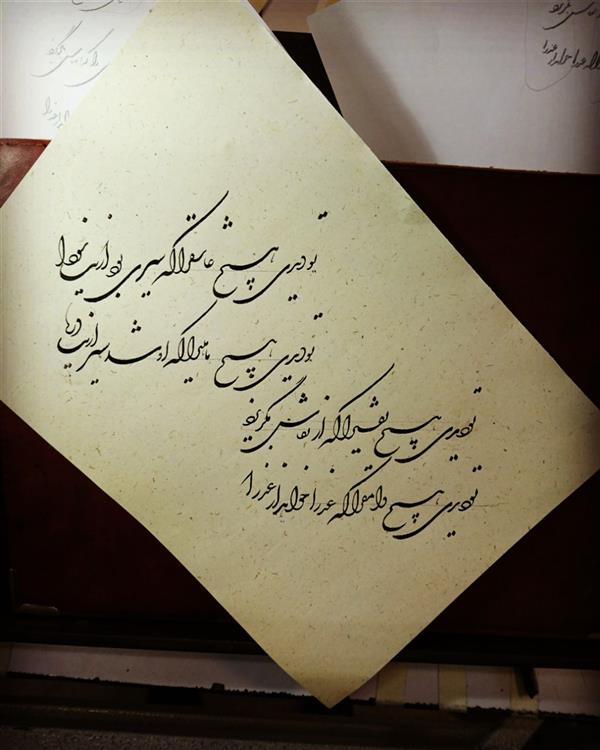 تو دیدی هیچ عاشق را که سیری بود ازین سودا
تو دیدی هیچ ماهی را که او شد سیر ازین دریا
تو دیدی هیچ نقشی را که از نقاش بگریزد
تو دیدی هیچ وامق را که عذرا خواهد از عذرا